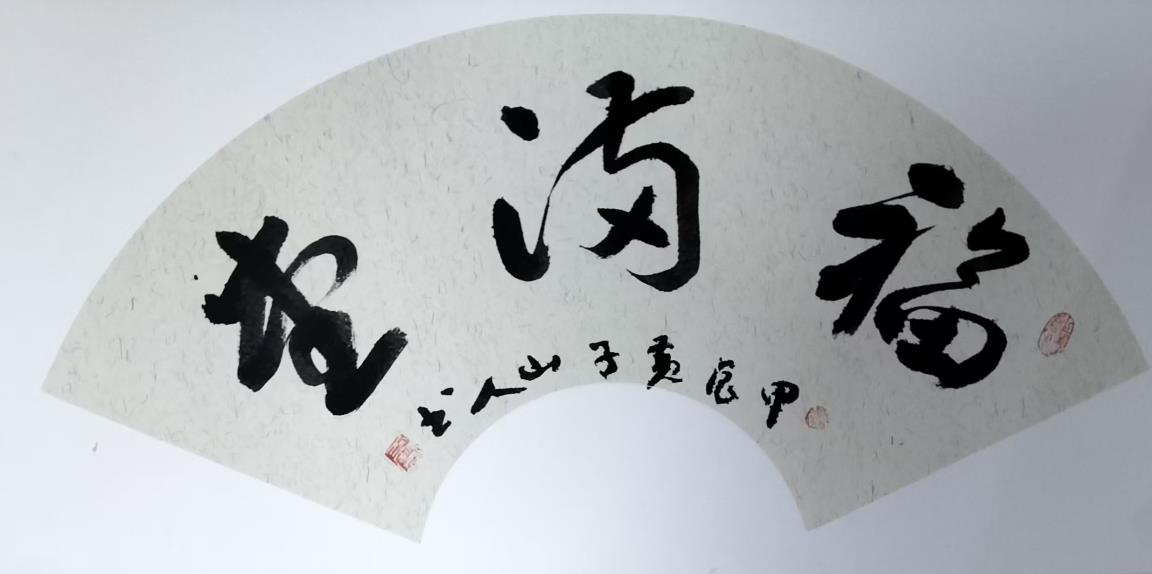 福满堂
甲辰黄子山人书